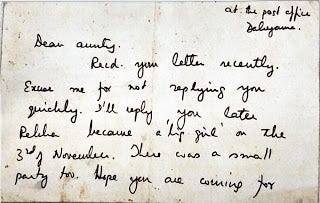 at the post office
Dalugama.
Dear aunty.
Recd. your letter recently.
Excuse me for not replying you
quickly. I'll reply you later
Rekha became a 'big girl' on the
3rd of November. There was a small
party too. Hope you are coming for